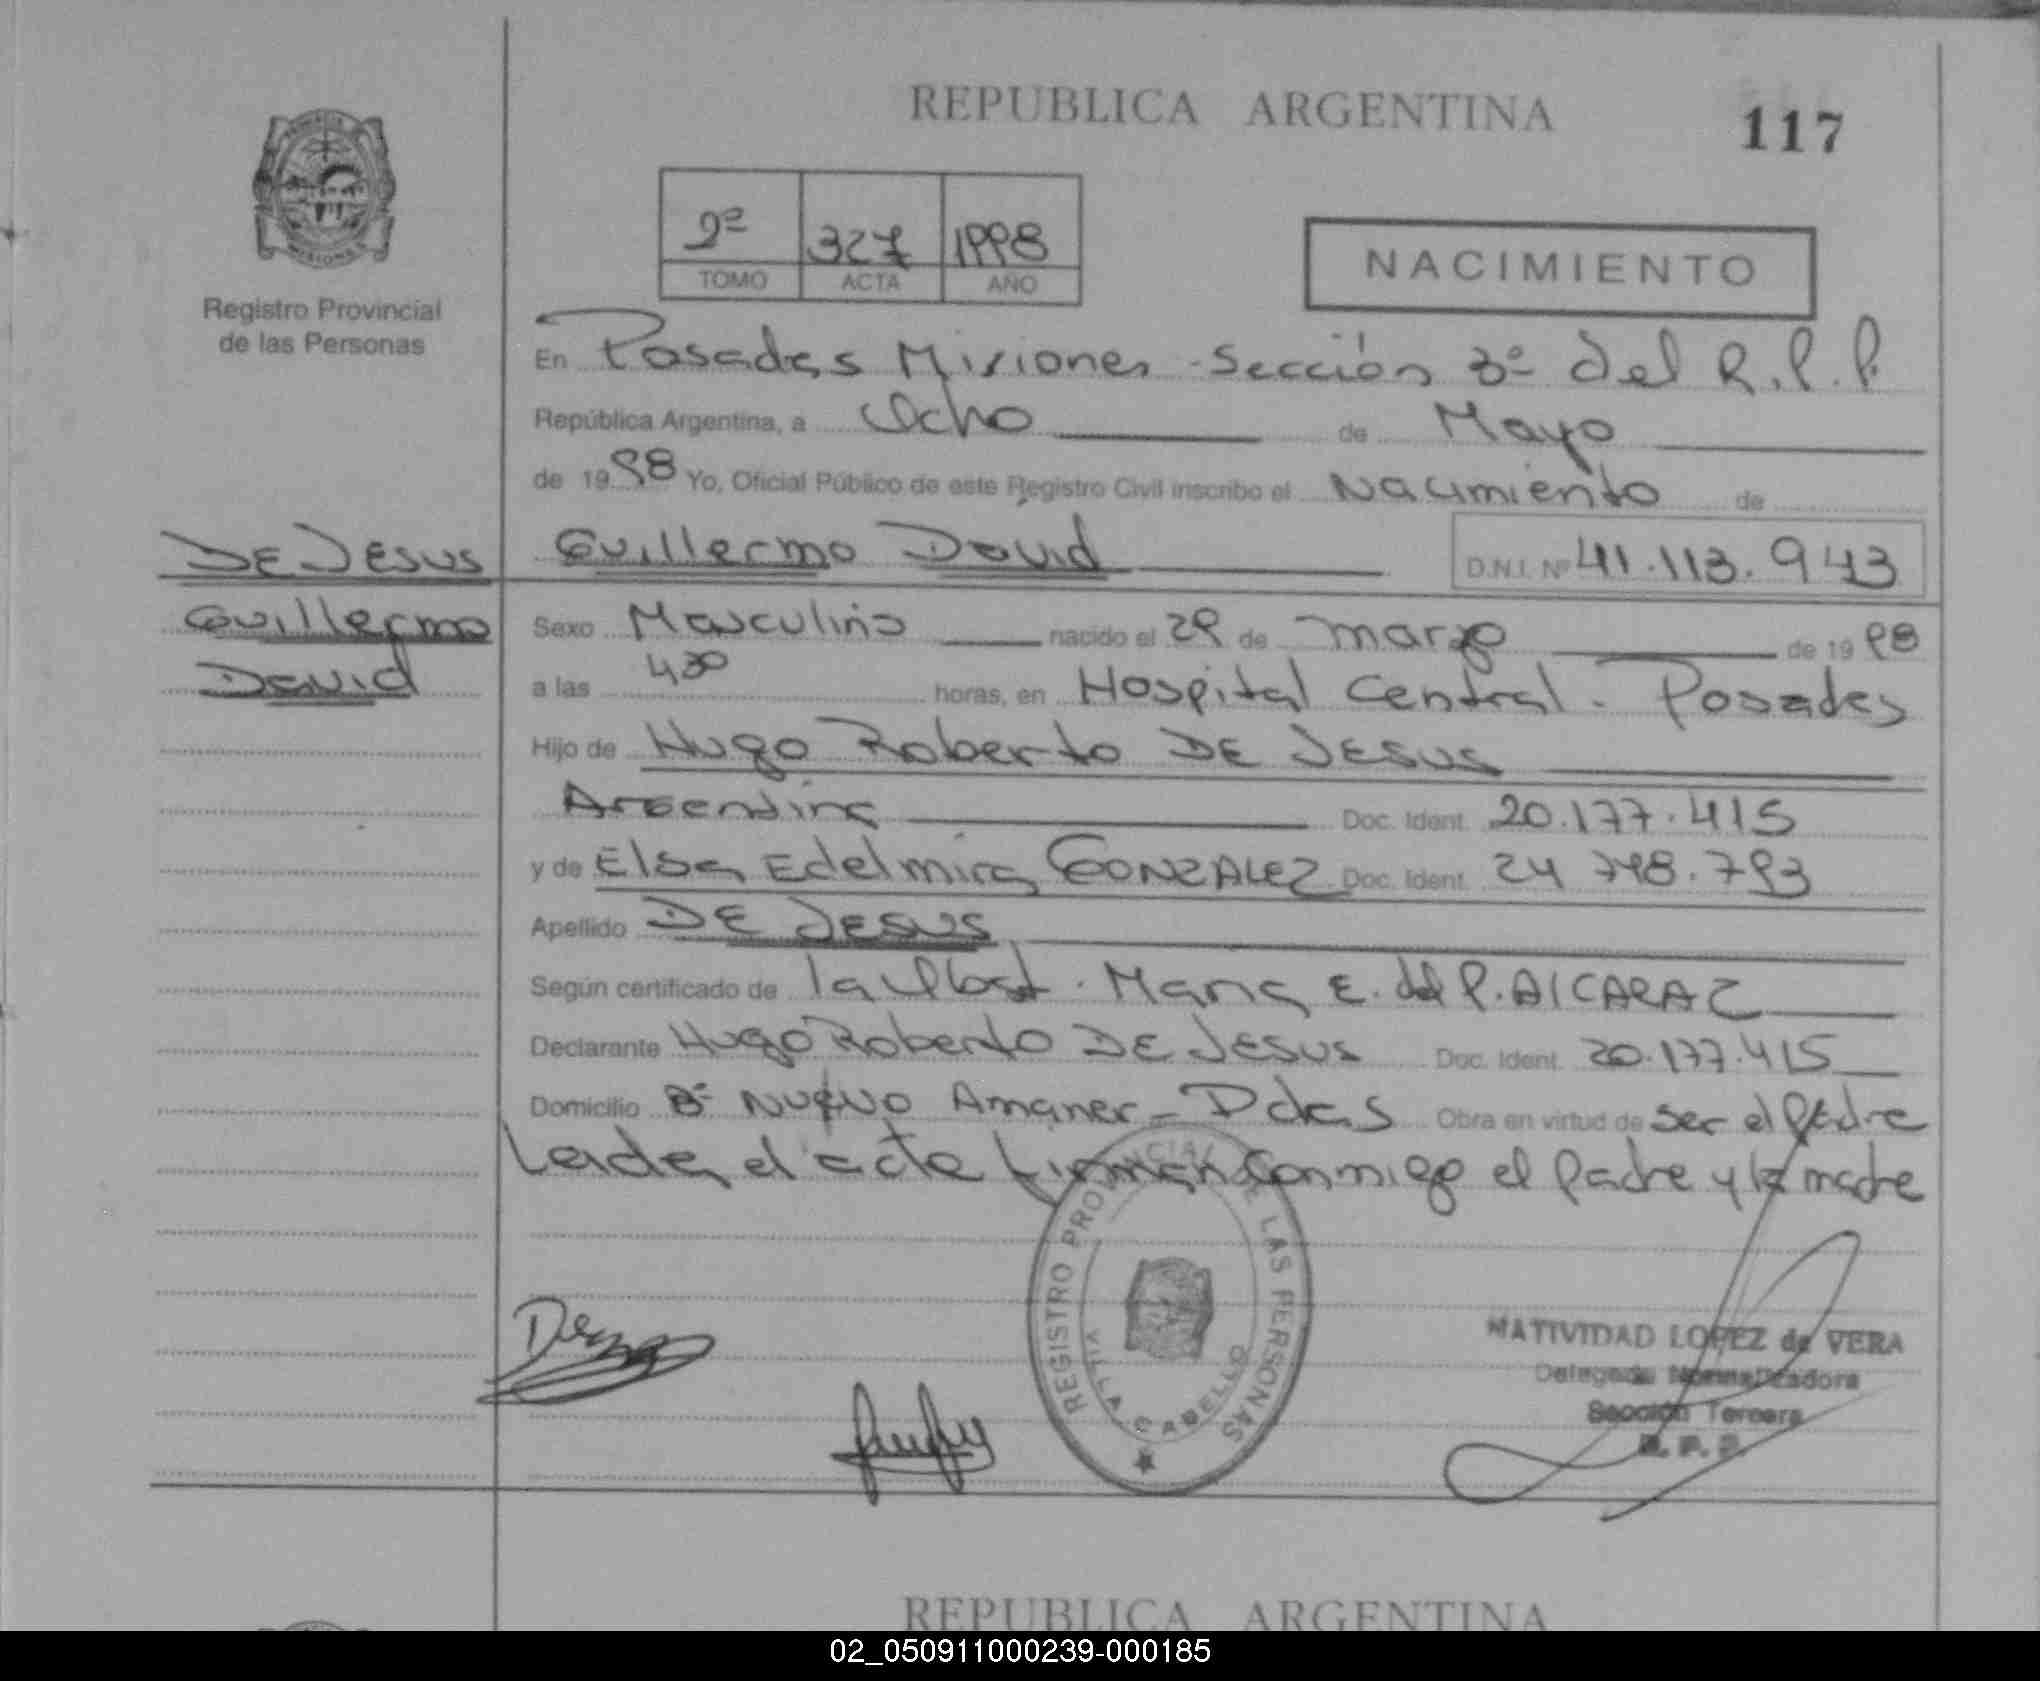 REPUBLICA ARGENTINA
117
2º 327 1998
TOMO ACTA AÑO
NACIMIENTO
Registro Provincial
de las Personas
En Posadas Misiones - Sección 3º del R.P.P.
República Argentina, a Ocho de Mayo
de 1998 Yo, Oficial Público de este Registro Civil inscribo el Nacimiento de
DE JESUS
Guillermo
David
Guillermo David D.N.I. Nº 41.113.943
Sexo Masculino nacido el 29 de marzo de 1998
a las 430 horas, en Hospital Central - Posadas
Hijo de Hugo Roberto DE JESUS
Argentina Doc. Ident. 20.177.415
y de Elsa Edelmira GONZALEZ Doc. Ident. 24 748.793
Apellido DE JESUS
Según certificado de la Obst. Maria E. del P. ALCARAZ
Declarante Hugo Roberto DE JESUS Doc. Ident. 20.177.415
Domicilio Bº Nuevo Amaner - Pdas Obra en virtud de ser el Padre
Leida el acta firman conmigo el padre y la madre
REGISTRO PROVINCIAL DE LAS PERSONAS
VILLA CABELLO
NATIVIDAD LOPEZ de VERA
Delegada Normalizadora
Sección Tercera
R. P. P.
REPUBLICA ARGENTINA
02_050911000239-000185